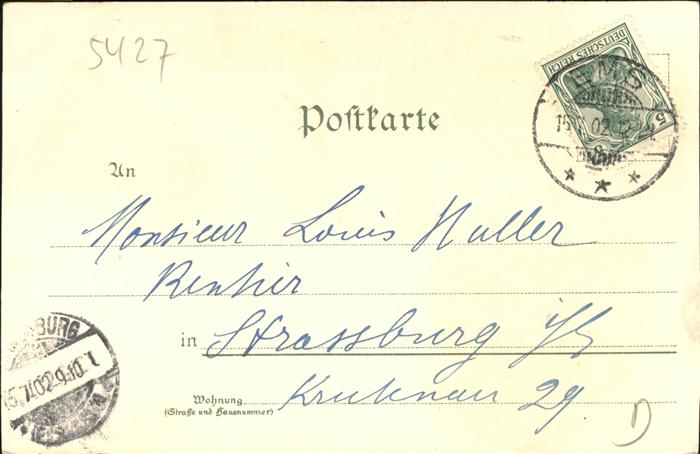 5427
DEUTSCHES REICH
5
EMS
15.7.02.12
Postkarte
An
Monsieur Louis Muller
Rentier
in Strassburg i/E
BURG
15.7.02.9-10.
Wohnung
(Straße und Hausnummer)
29
D